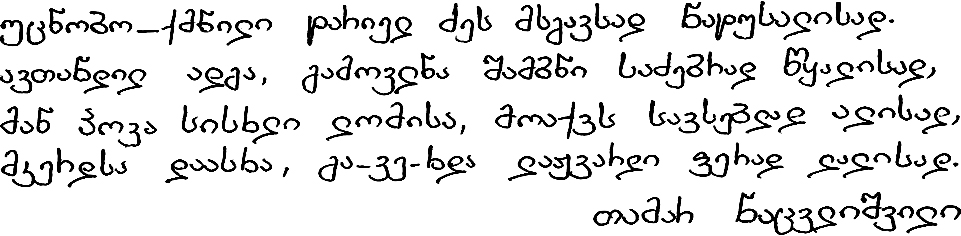 უცნობო-ქმნილი ტარიელ ძეს მსგავსად ნატუსალისად.
ავთანდილ ადგა, გამოვლნა შამბნი საძებრად წყალისად,
მან პოვა სისხლი ლომისა, მოაქვს სავსებლად ალისად,
მკერდსა დაასხა, გა-ვე-ხდა ლაჟვარდი ფერად ლალისად.
თამარ ნაცვლიშვილი